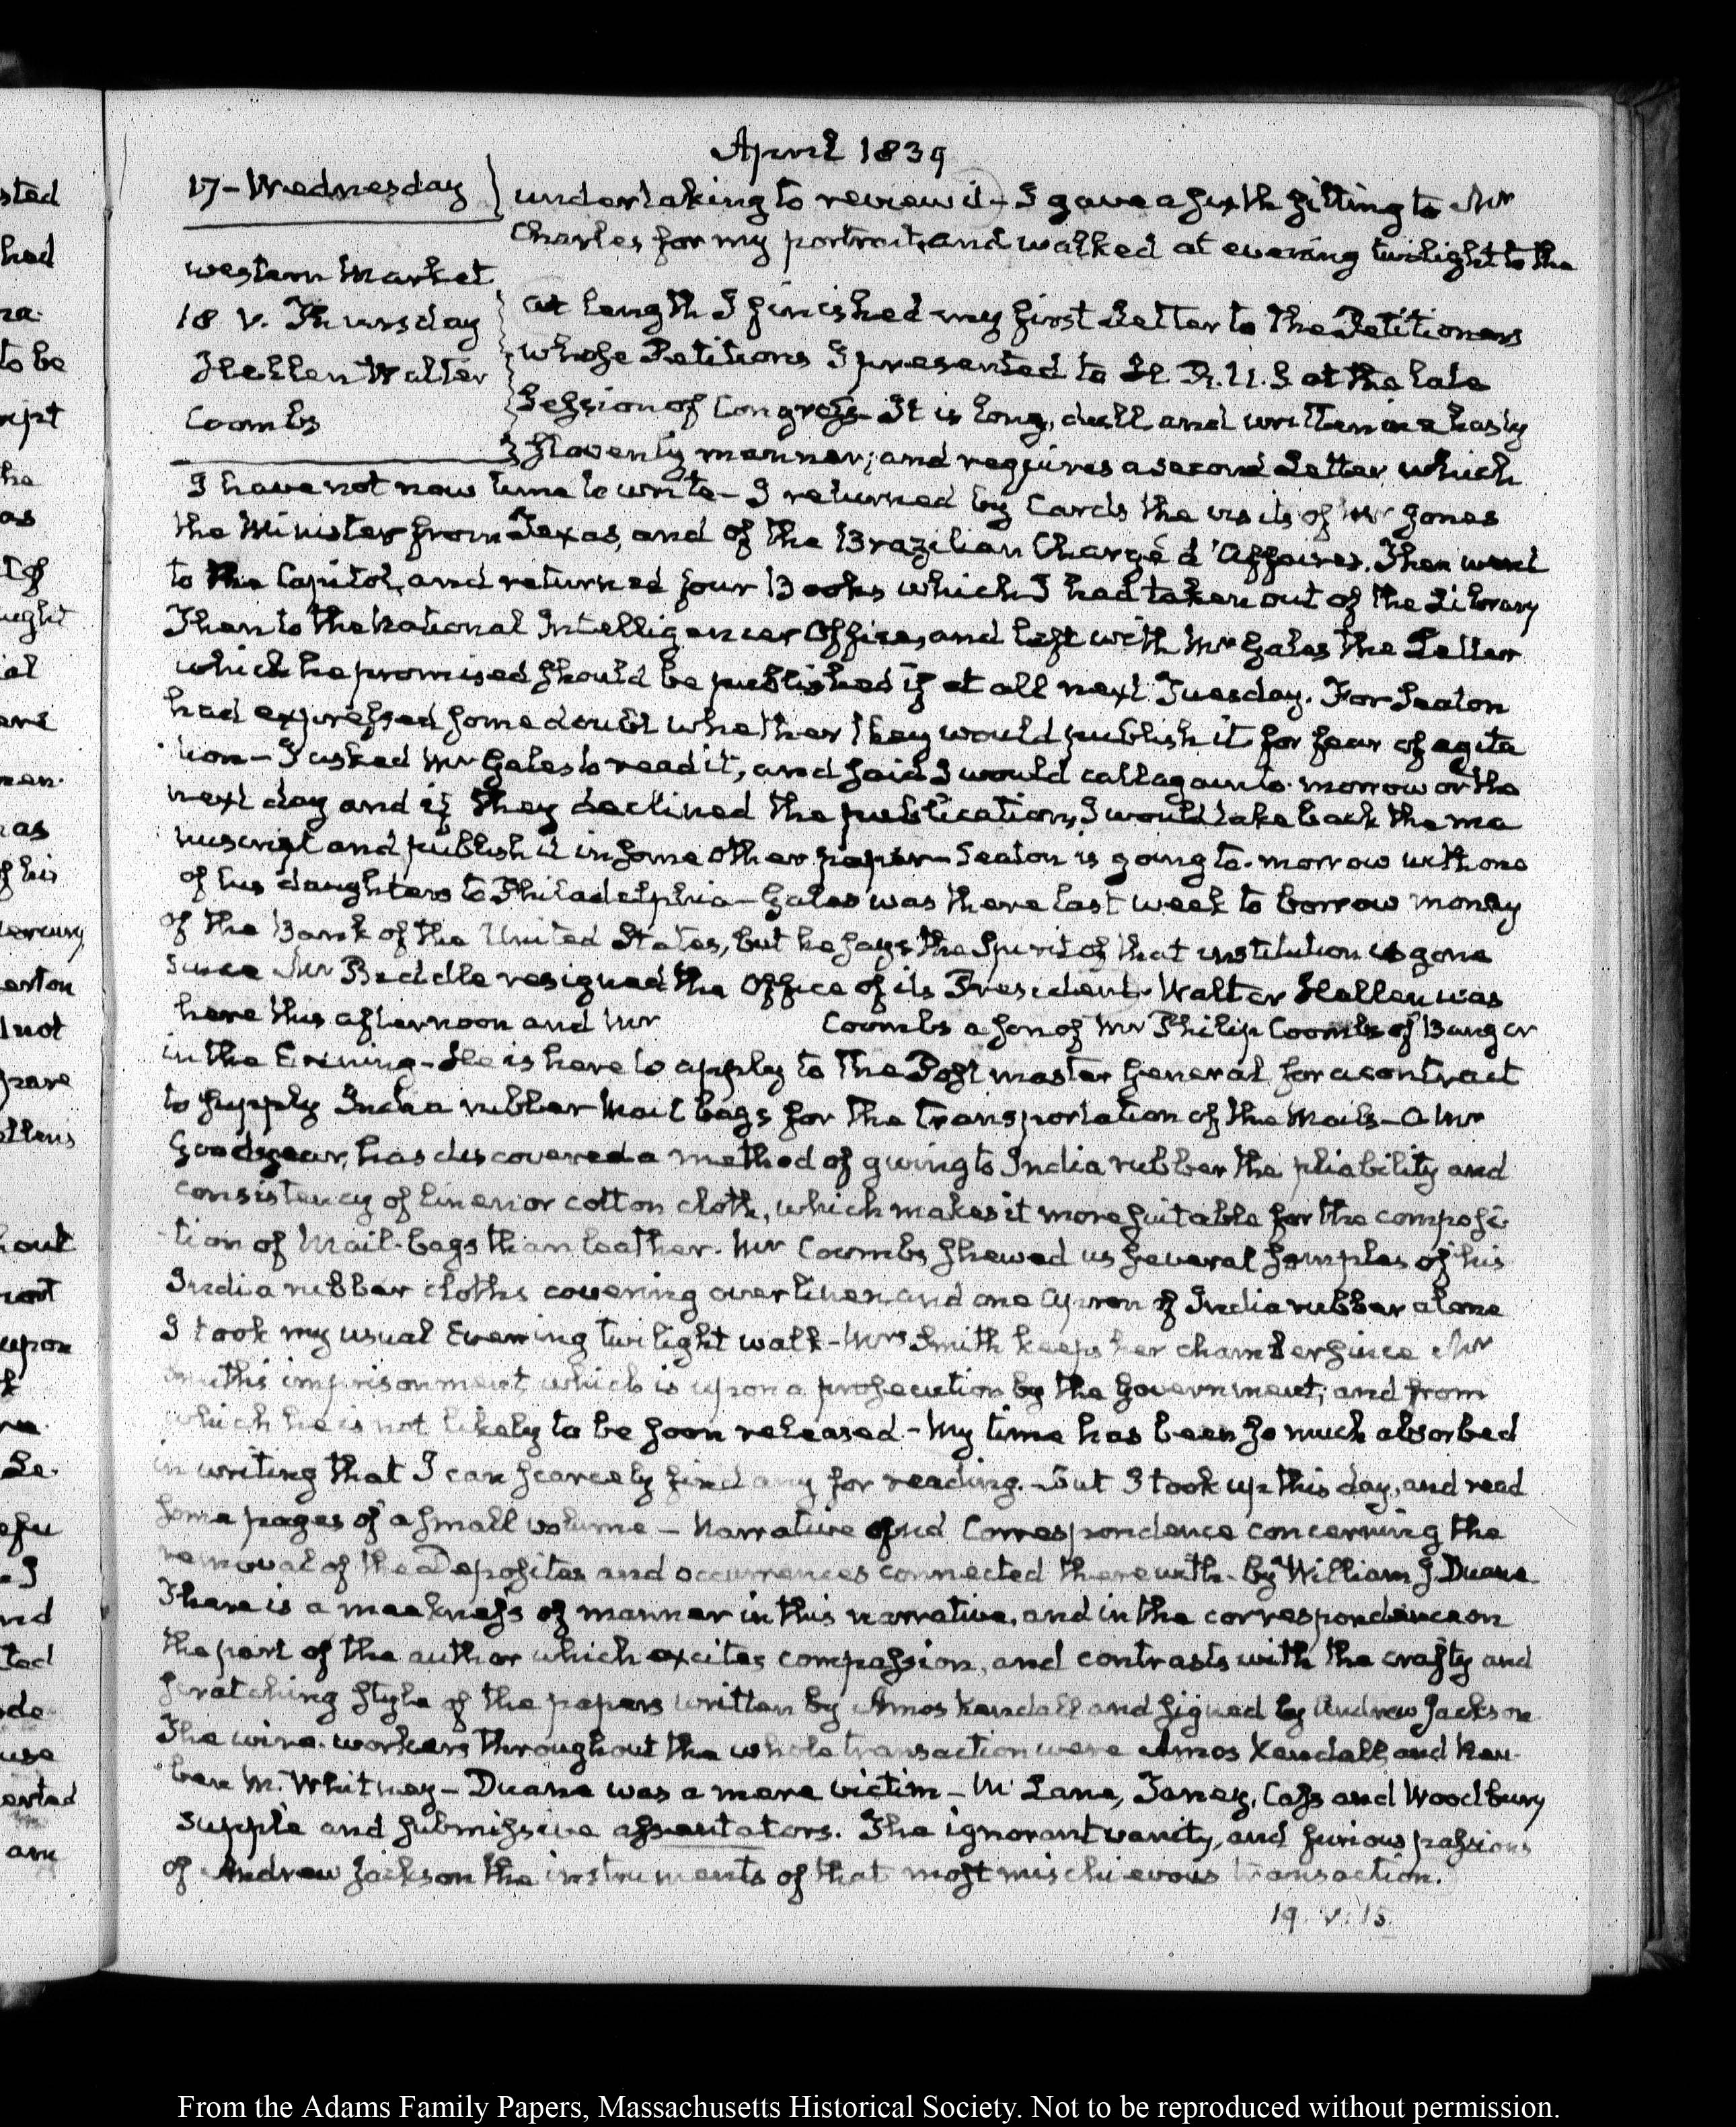 April 1839
17 - Wednesday
undertaking to review it - I gave a sixth sitting to Mr
Charles for my portrait, and walked at evening twilight to the
western Market.
18 V. Thursday
Hellen Walter
Coombs
At length I finished my first Letter to the Petitioners
whose Petitions I presented to H. R. U. S at the late
Session of Congress - It is long, dull and written in a hasty
slovenly manner; and requires a second Letter which
I have not now time to write - I returned by Cards the visits of Mr Jones
the Minister from Texas, and of the Brazilian Chargé d'Affaires. Then went
to the Capitol, and returned four Books which I had taken out of the Library
Then to the National Intelligencer Office, and left with Mr Gales the Letter
which he promised should be published if at all next Tuesday. For Seaton
had expressed some doubt whether they would publish it for fear of agita
tion - I asked Mr Gales to read it, and said I would call again to-morrow or the
next day and if they declined the publication, I would take back the ma
nuscript and publish it in some other paper - Seaton is going to-morrow with one
of his daughters to Philadelphia - Gales was there last week to borrow money
of the Bank of the United States, but he says the Spirit of that institution is gone
since Mr Biddle resigned the Office of its President. Walter Hellen was
here this afternoon and Mr Coombs a son of Mr Philip Coombs of Bangor
in the Evening - He is here to apply to the Post master General for a contract
to supply India rubber Mail bags for the transportation of the Mails - A Mr
Goodyear, has discovered a method of giving to India rubber the pliability and
consistency of linen or cotton cloth, which makes it more suitable for the composi-
tion of Mail-bags than leather. Mr Coombs shewed us several samples of his
India rubber cloths covering over linen and one apron of India rubber alone
I took my usual Evening twilight walk - Mrs Smith keeps her chamber since Mr
Smith's imprisonment which is upon a prosecution by the Government; and from
which he is not likely to be soon released - My time has been so much absorbed
in writing that I can scarcely find any for reading. - But I took up this day, and read
some pages of a small volume - Narrative and Correspondence concerning the
removal of the Deposites and occurrences connected therewith - by William J. Duane.
There is a meekness of manner in this narrative, and in the correspondence on
the part of the author which excites compassion, and contrasts with the crafty and
scratching style of the papers written by Amos Kendall and signed by Andrew Jackson.
The wire-workers throughout the whole transaction were Amos Kendall, and Reu-
ben M. Whitney - Duane was a mere victim - McLane, Taney, Cass and Woodbury
supple and submissive assentators. The ignorant vanity, and furious passions
of Andrew Jackson the instruments of that most mischievous transaction.
19. V: 15.
sted
had
ra-
to be
he
as
ught
ial
men-
as
of his
erton
not
out
upon
Le-
nd
ted
use
From the Adams Family Papers, Massachusetts Historical Society. Not to be reproduced without permission.